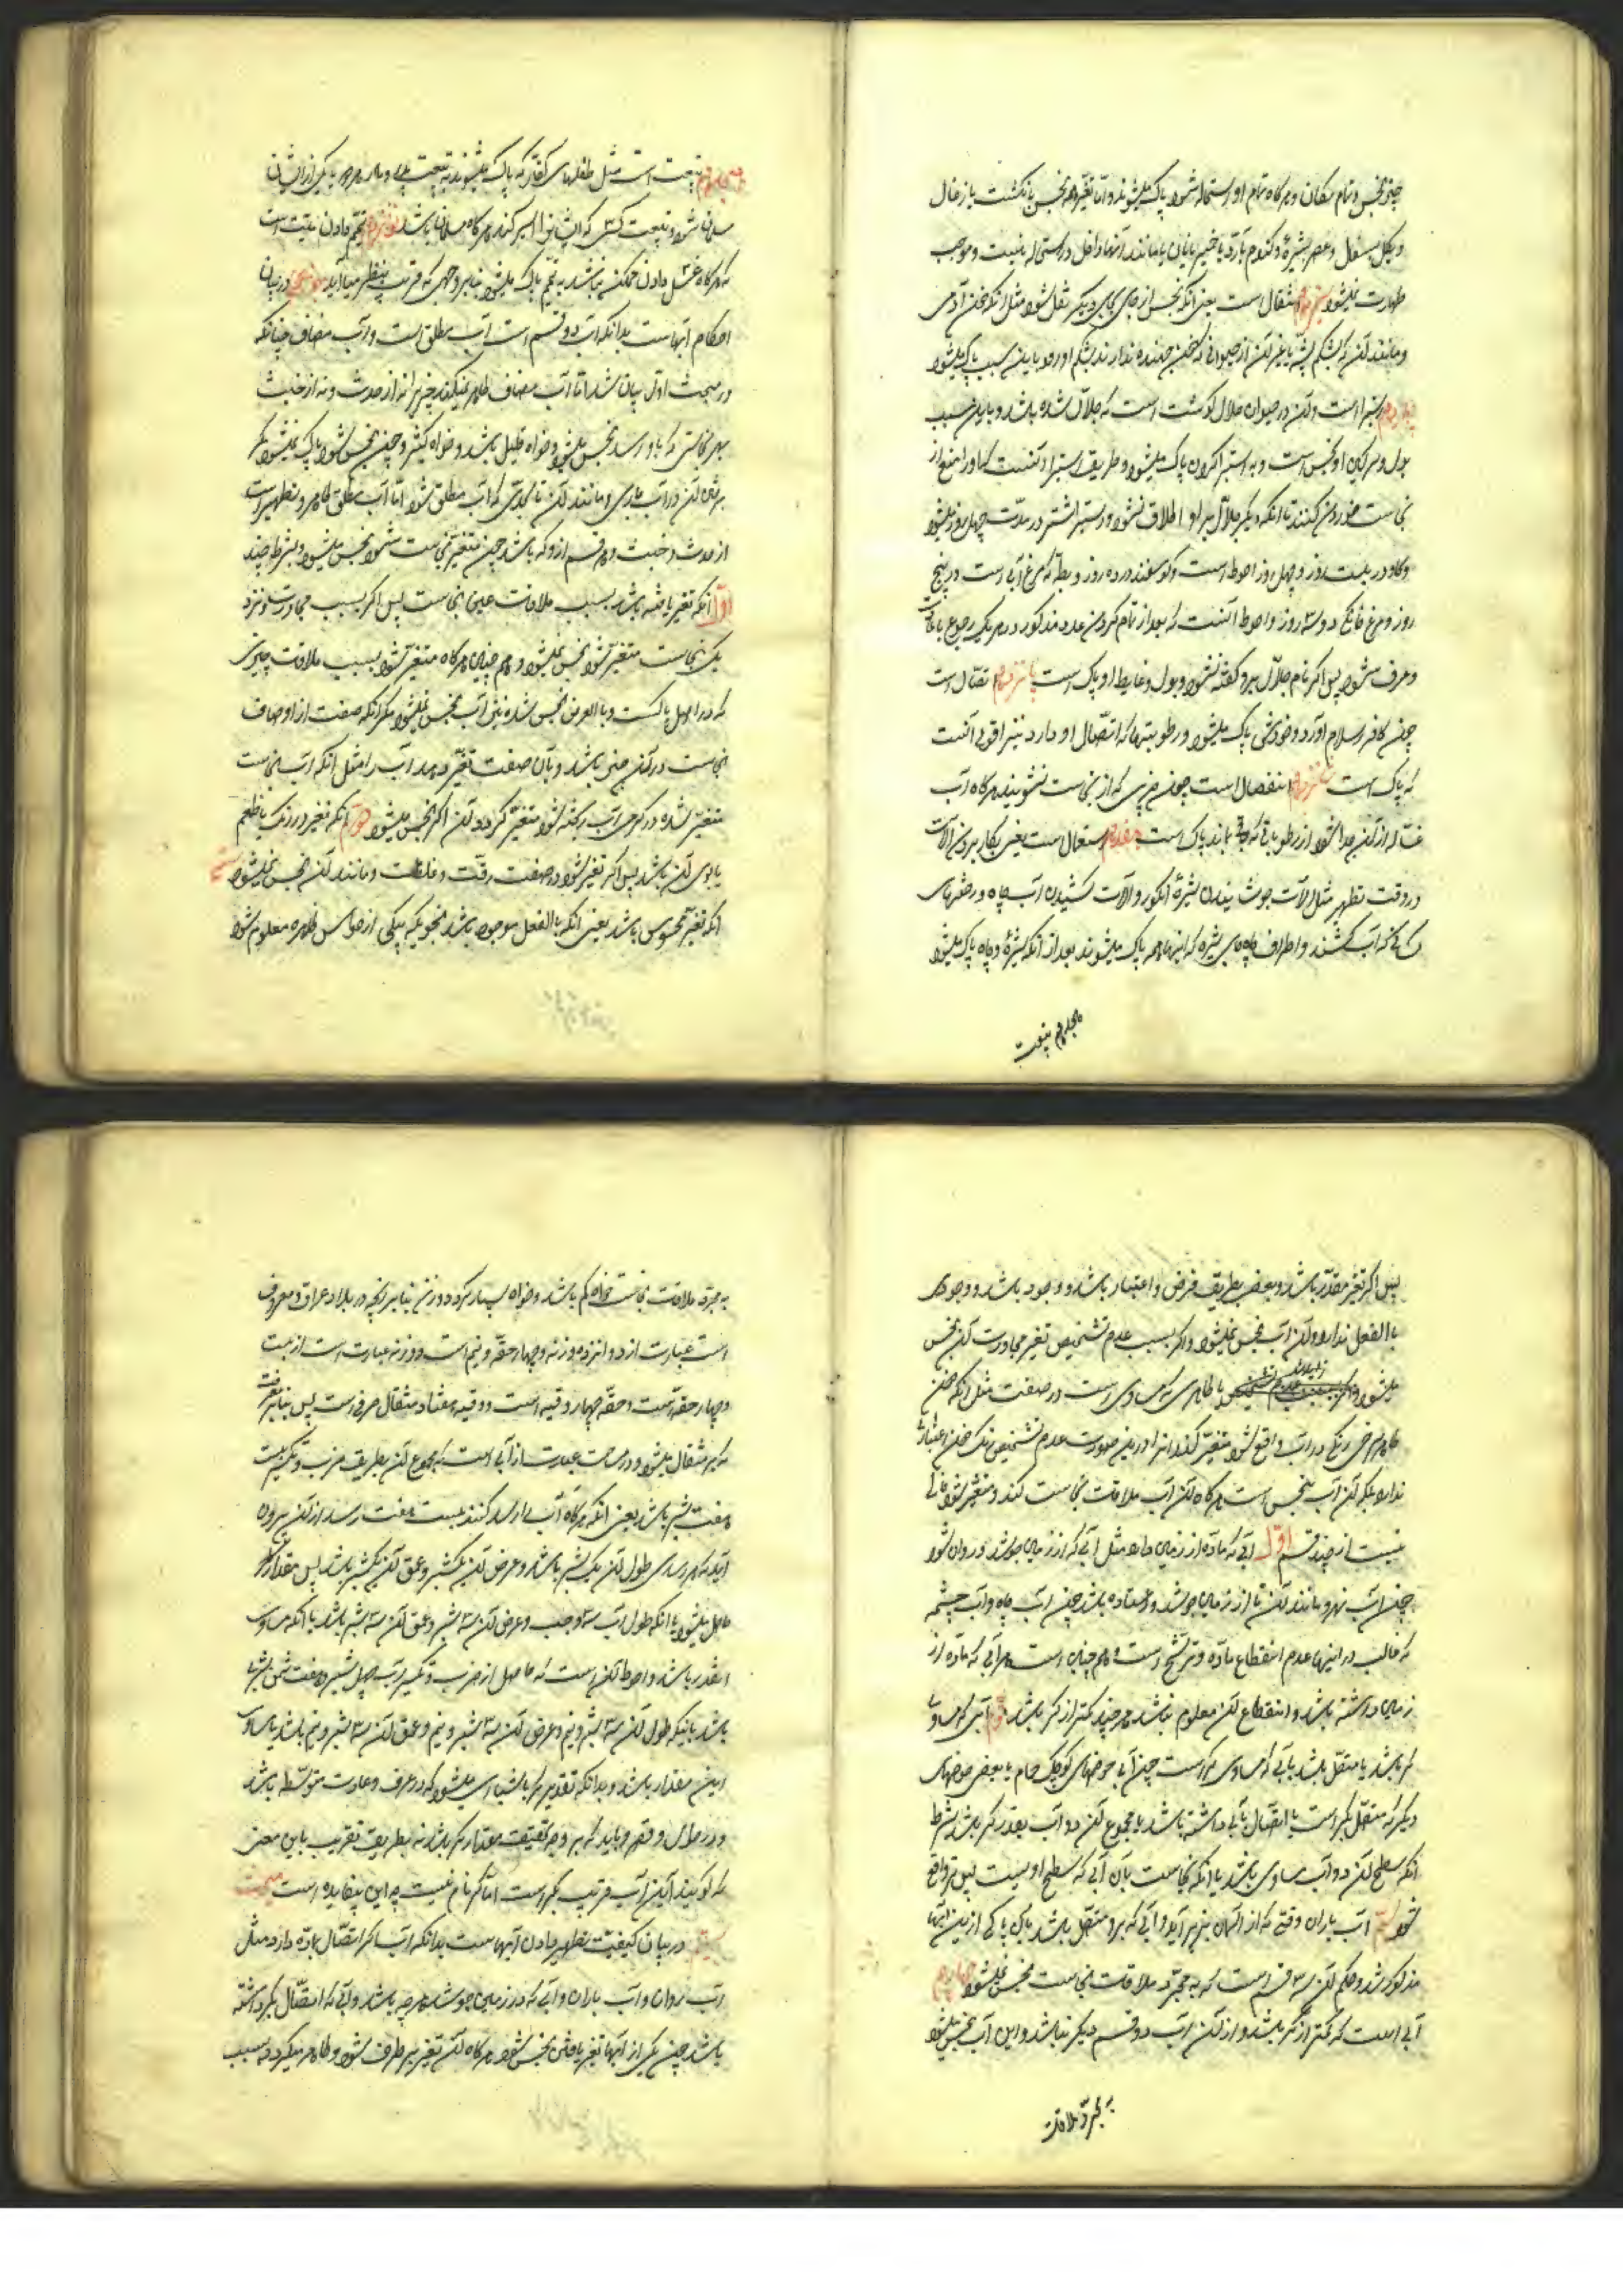 چیز نجس و تمام مکان و هرگاه تمام او استحاله شود پاک میشوند و اما تغیر همه نجس بانکشت یا زغال
و یا کل بسفال و عصر بشیره و کندم بآرد یا خمیر بانان یا مانند آنها داخل در استحاله نیست و موجب
طهارت نمیشود سیزدهم انتقال است یعنی آنکه نجس از جای بجای دیگر نقل شود مثل آنکه خون آدمی
و مانند آن که بشکم پشه یا غیر آن از حیوانی که خون جهنده ندارند بشکم او رود باین سبب پاک میشود
چهاردهم استبراء است و آن در حیوان حلال گوشت است که جلال شده باشد و باین سبب
بول و سرکین او نجس است و به استبرا کردن پاک میشود و طریق استبرا آنست که او را منع از
نجاست خوردن کنند تا آنکه دیگر جلال بر او اطلاق نشود و استبراء شتر در مدت چهل روز میشود
و گاو در بیست روز و چهل روز احوط است و گوسفند در ده روز و بطه که مرغ آبی است در پنج
روز و مرغ خانگی در سه روز و احوط آنست که بعد از تمام کردن عدد مذکور در هر یک رجوع بعادت
و عرف شود پس اگر نام جلال بر او گفته نشود بول و غایط او پاک است پانزدهم اتصال است
چون کافر اسلام آورد و خودش پاک میشود و رطوبتها که اتصال او دارد نیز اقوی آنست
که پاک است شانزدهم انفصال است چون چیزی که از نجاست بشویند هرگاه آب
غساله از آن جدا شود از رطوباتی که باقی بماند پاک است هفدهم استعمال است یعنی بکار بردن آلات
در وقت تطهیر مثل آلات جوشانیدن شیره انگور و آلات کشیدن آب چاه و رختهای
کسانی که آب کشند و اطراف چاه و جای شیره که اینها همه پاک میشوند بعد از آنکه شیره و چاه پاک میشود
هیجدهم تبعیت
هیجدهم تبعیت است مثل طفلهای کفار که پاک میشوند به تبعیت پدر و مادر هرگاه یکی از ایشان
مسلمان شود و تبعیت کسی که ایشان را اسیر کند هرگاه مسلمان باشد نوزدهم تیمم دادن میت است
که هرگاه غسل دادن ممکن نباشد به تیمم پاک میشود بنابر وجهی که قریب بنظر میآید در بیان
احکام آبهاست بدانکه آب دو قسم است آب مطلق است و آب مضاف چنانکه
در مبحث اول بیان شد اما آب مضاف طاهر نمیکند چیزی را نه از حدث و نه از خبث
بهر نجاستی که باو رسد نجس میشود خواه قلیل باشد و خواه کثیر و چون نجس شود پاک نمیشود مگر
بریختن آن در آب جاری و مانند آن تا بحدی که آب مطلق شود اما آب مطلق طاهر و مطهر است
از حدث و خبث و هر قسم از او که باشد چون متغیر بنجاست شود نجس میشود بشرط چند
اول آنکه تغیر یافته باشد بسبب ملاقات عین نجاست پس اگر بسبب مجاورت و نزد
یک نجاست متغیر شود نجس نمیشود و همچنین هرگاه متغیر شود بسبب ملاقات چیزی
که در اصل پاکست و بالعرض نجس شده این آب نجس نمیشود مگر آنکه صفت از اوصاف
نجاست در آن چیز باشد و بآن صفت تغیر دهد آب را مثل آنکه آب نجاست
متغیر شده در کر آب ریخته شود متغیر گردد آن کر نجس میشود دوم آنکه تغیر در رنگ یا طعم
یا بوی آن باشد پس اگر تغیر شود در صفت رقت و غلظت و مانند آن نجس نمیشود سیم
آنکه تغیر محسوس باشد یعنی آنکه بالفعل موجود باشد بنحویکه بیکی از حواس ظاهره معلوم شود
پس اگر تغیر مقدر باشد و بعض بطریق فرض و اعتبار باشد و وجود باشد و وجودی
بالفعل ندارد آن آب نجس نمیشود و اگر بسبب عدم تشخیص تغیر مجاورت آن نجس
میشود یا طاهری که مساوی است در صفت مثل آنکه خون
طاهر سرخ رنگی در آب واقع شود متغیر کند آنرا در این صورت عدم تشخیص رنگ خون اعتبار
ندارد بلکه آن آب نجس است هرگاه آن آب ملاقات نجاست کند و متغیر نشود
نیست از چند قسم اول آبی که ماده از زمین دارد مثل آبی که از زمین جوشد و روان شود
چون آب نهر و مانند آن یا از زمین جوشد و ایستاده باشد چون آب چاه و آب چشمه
که غالب در اینها عدم انقطاع ماده و ترشح است و همچنین است هر آبی که ماده از
زمین داشته باشد و انقطاع آن معلوم نباشد هر چند کمتر از کر باشد دوم آبی که مساوی
کر باشد یا متصل باشد بآبی که مساوی کر است چون آبی حوضهای کوچک حمام یا بعض حوضهای
دیگر که متصل بکر است یا اتصال بآبی داشته باشد یا مجموع آن دو آب بقدر کر باشد بشرط
آنکه سطح آن دو آب مساوی باشد یا آنکه نجاست بآن آبی که سطح او پست تر واقع
شود سیم آب باران وقتی که از آسمان بزیر آید و آبی که برو متصل باشد پاکی از بین آبها
مذکور شد و حکم آن سه قسم است که به مجرد ملاقات نجاست نجس نمیشود چهارم
آبی است که کمتر از کر باشد و از آن آب دو قسم دیگر نباشد و این آب نجس میشود
به مجرد ملاقات
به مجرد ملاقات نجاست خواه کم باشد و خواه بسیار کر در وزن بنابر آنچه در بلاد عراق معروف
است عبارت از دوازده وزنه و چهار حقه و نیم است و وزنه عبارت است از بیست
و چهار حقه است و حقه چهار وقیه است و وقیه هفتاد مثقال صرفی است پس بنابر معرفت
کر مثقال میشود و در مساحت عبارت از آبی است که مجموع آن بطریق ضرب و تکسیر بیست
هفت شبر باشد یعنی آنکه هرگاه آب را رسد کنند بیست هفت رسد از آن بیرون
آید که هر رسدی طول آن یک شبر باشد و عرض آن یکشبر و عمق آن یکشبر باشد پس مقدار کر
حاصل میشود یا آنکه طول آب سه وجب و عرض آن سه شبر و عمق آن سه شبر باشد یا آنکه مساوی
اینقدر باشد و احوط آن است که حاصل از ضرب و تکسیر آب چهل شبر و هفت ثمن شبر
باشد باینکه طول آن سه شبر و نیم و عرض آن سه شبر و نیم و عمق آن سه شبر و نیم باشد یا مساوی
این مقدار باشد و بدانکه تقدیر کر باشباری میشود که در عرف و عادت متوسط باشد
و در طول و قصر و باید که بر وجه تحقیق مقدار کر باشد نه بطریق تقریب باین معنی
که گویند این آب قریب بکر است اما کر تمام نیست چه این بیفایده است مبحث
در بیان کیفیت تطهیر دادن آبهاست بدانکه آب اگر اتصال بماده دارد مثل
آب روان و آب باران و آبی که در زمین جوشد هر چه باشد و آبی که اتصال بکر داشته
باشد چون یکی از آنها تغیر یافتن نجس شود هرگاه آن تغیر بر طرف شود و طاهر میگردد به سبب